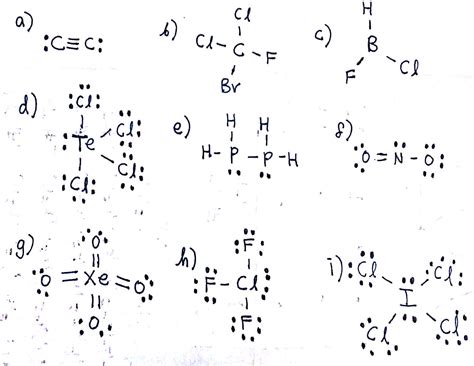 a) :C≡C:
b) Cl
Cl - C - F
Br
c) H
B
F Cl
d) :Cl:
:Te Cl:
Cl:
:Cl:
e) H H
H - P - P - H
f) :O = N - O:
g) O
O = Xe = O
O
h) :F:
:F - Cl:
:F:
i) :Cl Cl:
I
Cl Cl